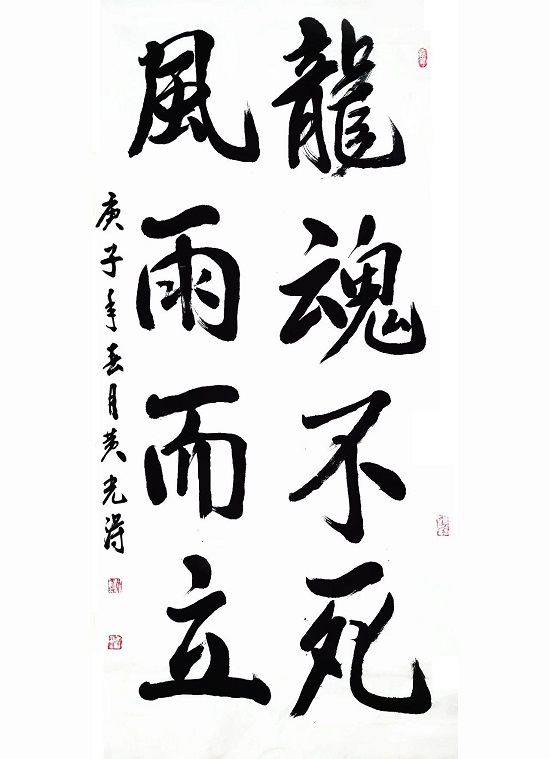 龍魂不死
風雨而立
庚子年春月黄光濤